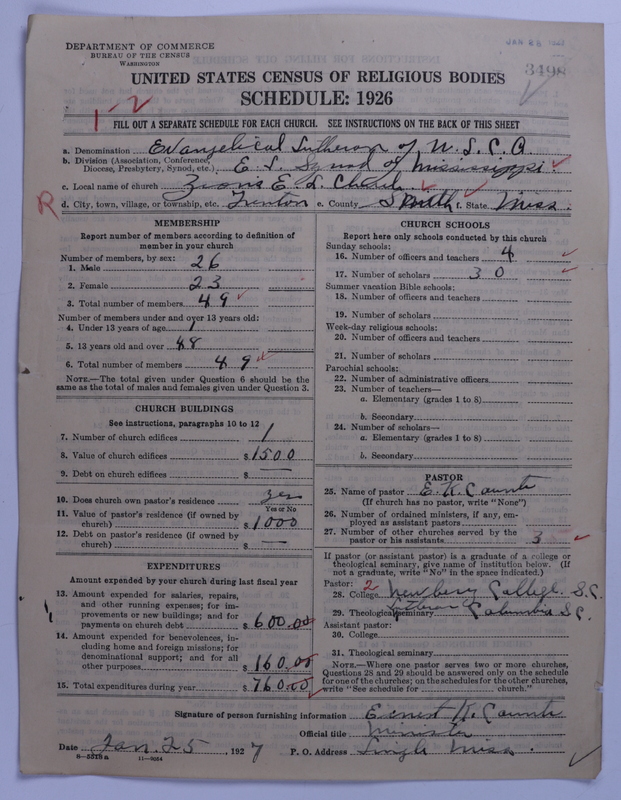 DEPARTMENT OF COMMERCE
BUREAU OF THE CENSUS
WASHINGTON
3498
UNITED STATES CENSUS OF RELIGIOUS BODIES
SCHEDULE: 1926
1-2
FILL OUT A SEPARATE SCHEDULE FOR EACH CHURCH. SEE INSTRUCTIONS ON THE BACK OF THIS SHEET
a. Denomination Evangelical Lutheran of U.S.C.A.
b. Division (Association, Conference, Diocese, Presbytery, Synod, etc.) E. L. Synod of Mississippi
c. Local name of church Zions E. L. Church
R
d. City, town, village, or township, etc. Trenton e. County Smith f. State Miss.
MEMBERSHIP
Report number of members according to definition of
member in your church
Number of members, by sex:
1. Male 26
2. Female 23
3. Total number of members 49
Number of members under and over 13 years old:
4. Under 13 years of age 1
5. 13 years old and over 48
6. Total number of members 49
NOTE.—The total given under Question 6 should be the
same as the total of males and females given under Question 3.
CHURCH BUILDINGS
See instructions, paragraphs 10 to 12
7. Number of church edifices 1
8. Value of church edifices $1500
9. Debt on church edifices $ —
10. Does church own pastor's residence yes
Yes or No
11. Value of pastor's residence (if owned by
church) $1000
12. Debt on pastor's residence (if owned by
church) $ —
EXPENDITURES
Amount expended by your church during last fiscal year
13. Amount expended for salaries, repairs,
and other running expenses; for im-
provements or new buildings; and for
payments on church debt $ 600.00
14. Amount expended for benevolences, in-
cluding home and foreign missions; for
denominational support; and for all
other purposes $160.00
15. Total expenditures during year $760.00
CHURCH SCHOOLS
Report here only schools conducted by this church
Sunday schools:
16. Number of officers and teachers 4
17. Number of scholars 30
Summer vacation Bible schools:
18. Number of officers and teachers
19. Number of scholars
Week-day religious schools:
20. Number of officers and teachers
21. Number of scholars
Parochial schools:
22. Number of administrative officers
23. Number of teachers—
a. Elementary (grades 1 to 8)
b. Secondary
24. Number of scholars—
a. Elementary (grades 1 to 8)
b. Secondary
PASTOR
25. Name of pastor E. K. Counts
(If church has no pastor, write "None")
26. Number of ordained ministers, if any, em-
ployed as assistant pastors
27. Number of other churches served by the
pastor or his assistants 3
If pastor (or assistant pastor) is a graduate of a college or
theological seminary, give name of institution below. (If
not a graduate, write "No" in the space indicated.)
Pastor: 2
28. College Newberry College. S.C.
29. Theological seminary Lutheran Columbia S.C.
Assistant pastor:
30. College
31. Theological seminary
NOTE.—Where one pastor serves two or more churches,
Questions 28 and 29 should be answered only on the schedule
for one of the churches; on the schedules for the other churches,
write "See schedule for church."
Signature of person furnishing information Ernest K. Counts
Official title Minister
Date Jan. 25, 1927 P. O. Address Miss.
8—5518a 11—9054